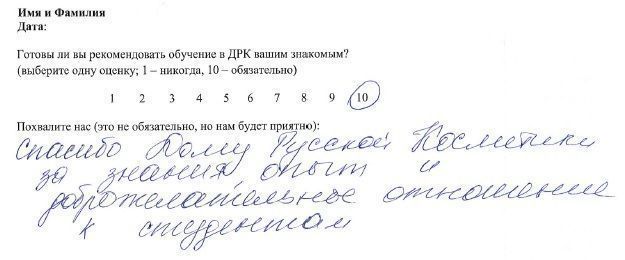 Имя и Фамилия
Дата:
Готовы ли вы рекомендовать обучение в ДРК вашим знакомым?
(выберите одну оценку; 1 – никогда, 10 – обязательно)
1 2 3 4 5 6 7 8 9 10
Похвалите нас (это не обязательно, но нам будет приятно):
Спасибо Дому Русской Косметики
за знания, опыт и
доброжелательное отношение
к студентам